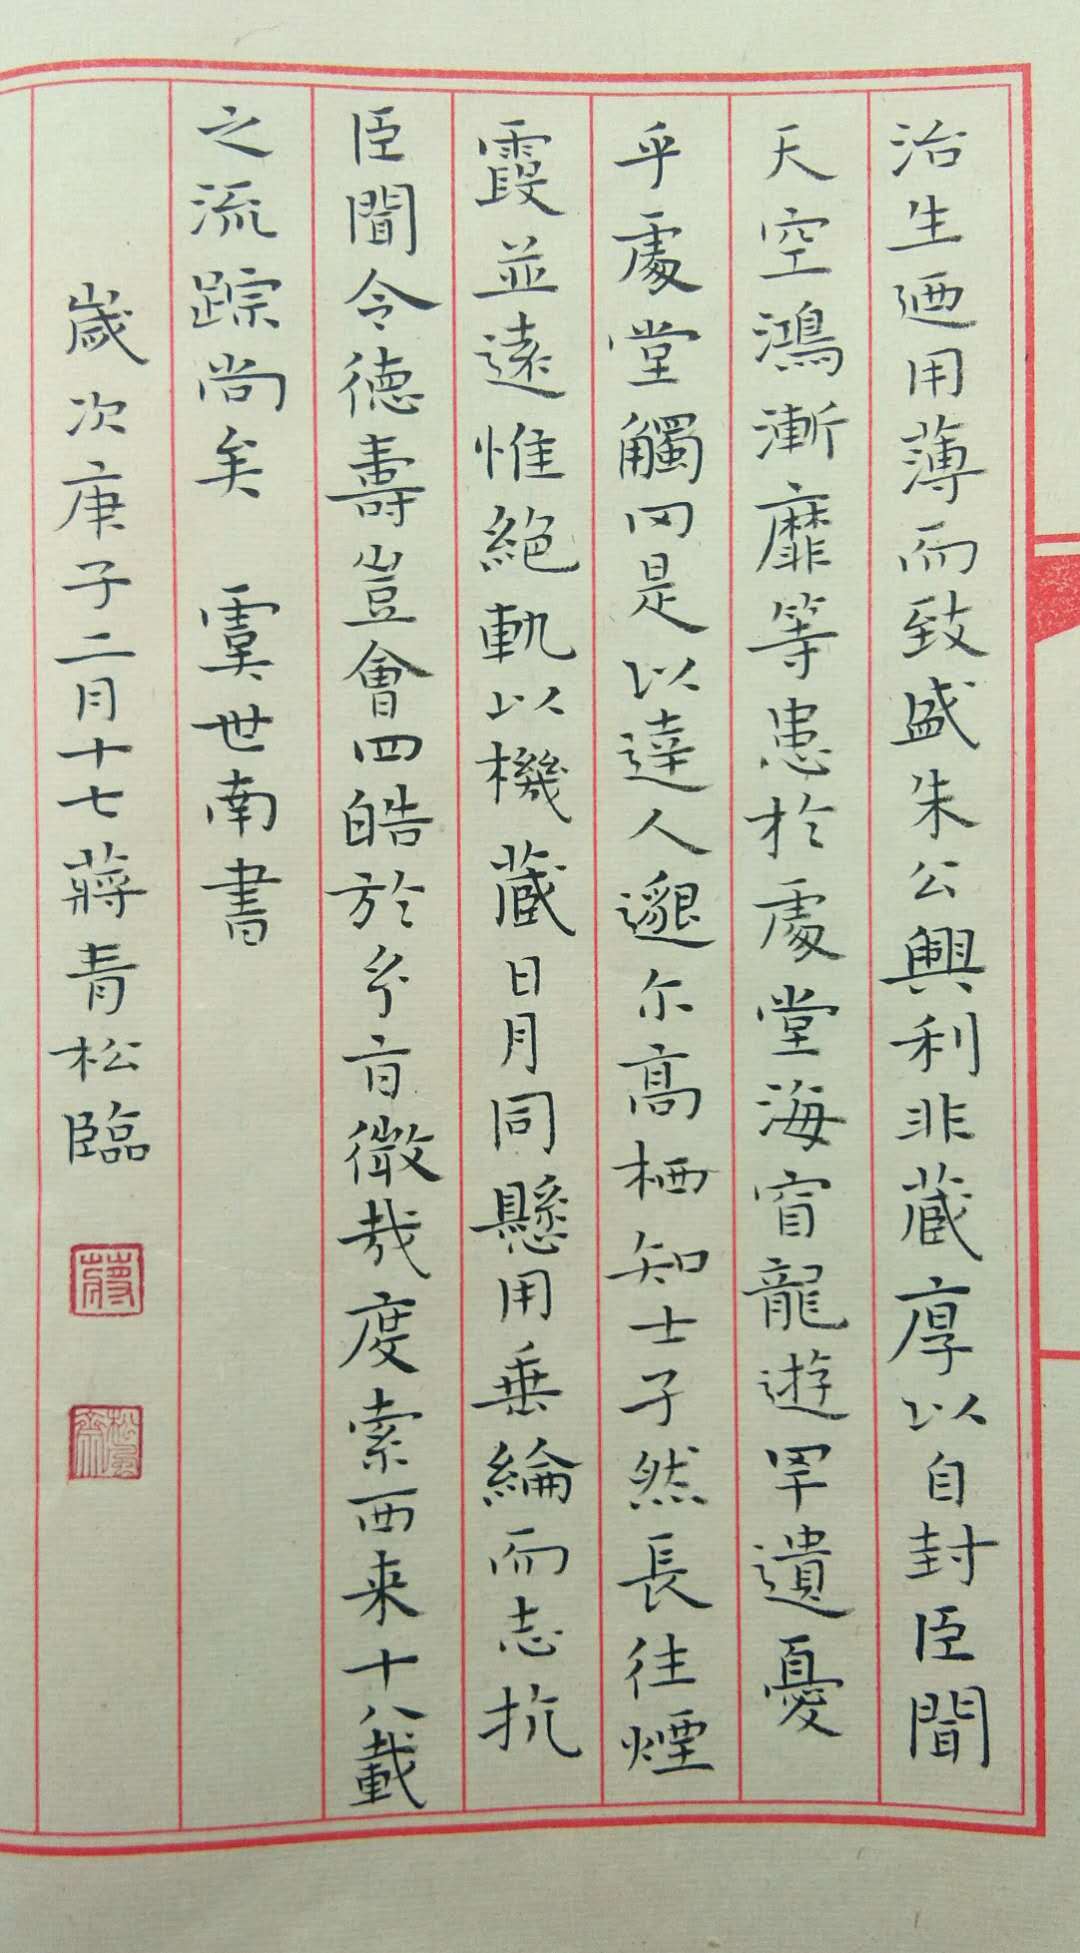 治生迺用薄而致盛朱公興利非蔵厚以自封臣聞
天空鴻漸靡等患於處堂海窅龍遊罕遺憂
乎處堂觸罔是以達人邈尔高栖知士孑然長往煙
霞並遠惟絕軌以機蔵日月同懸用垂綸而志抗
臣聞令德壽豈會四皓於兮盲徵哉度索西来十八載
之流踪尚矣 虞世南書
歲次庚子二月十七蔣青松臨
蔣